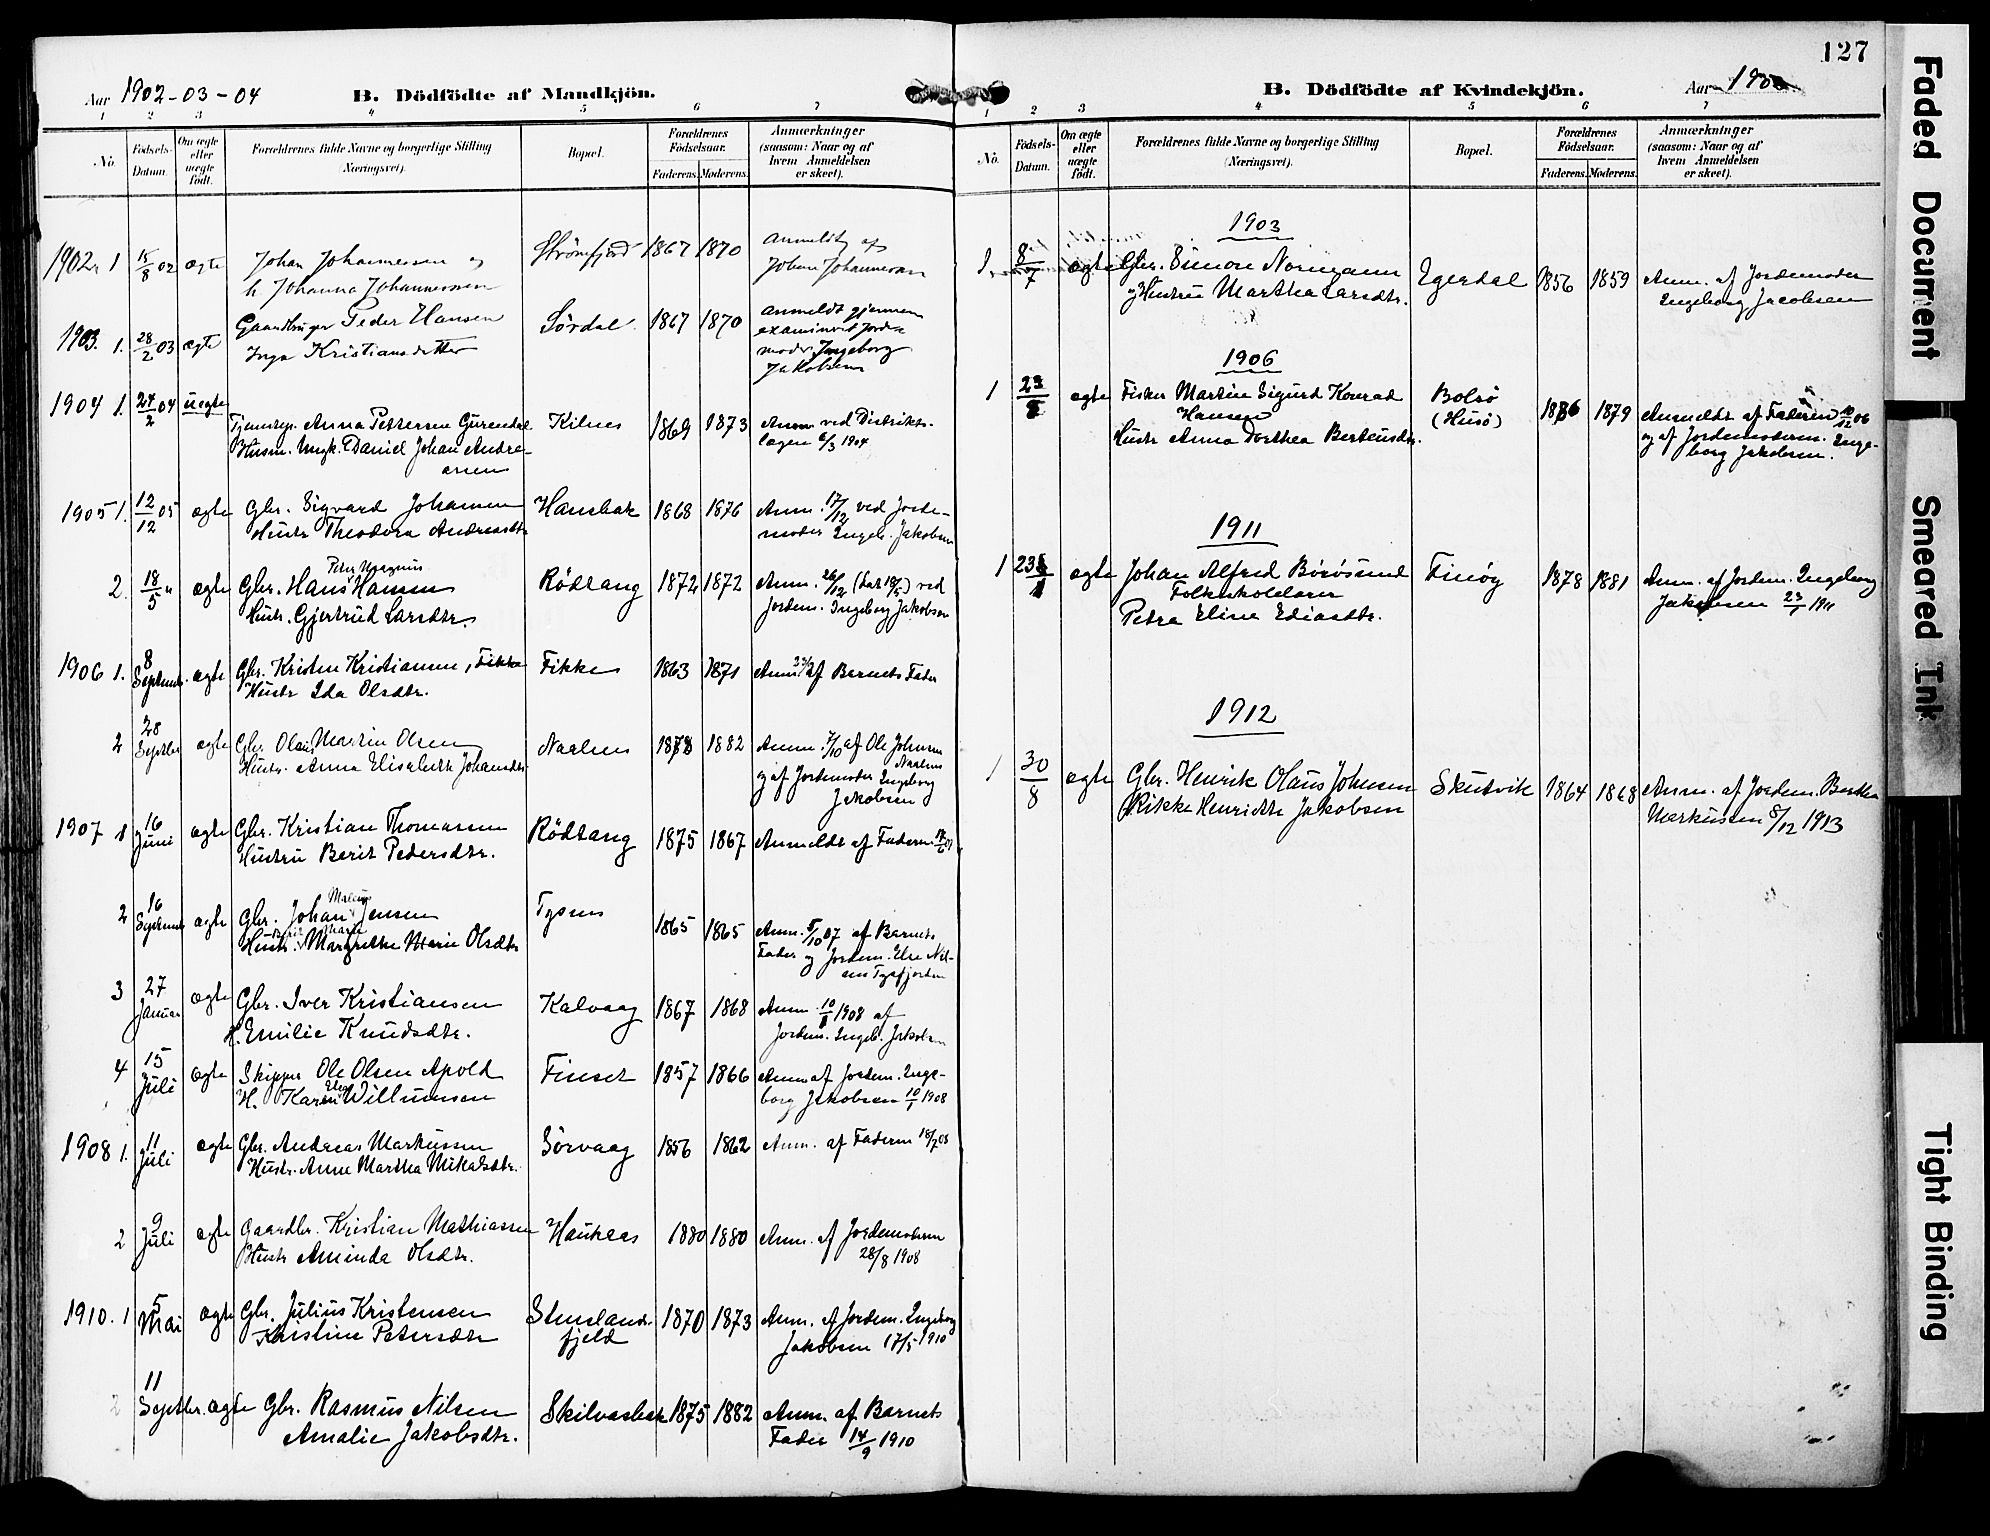 127
Aar 1902-03-04 B. Dödfödte af Mandkjön.
1 2 3 4 5 6 7
No. Födsels-Datum. Om ægte eller uægte födt. Forældrenes fulde Navne og borgerlige Stilling (Næringsvei). Bopæl. Forældrenes Födselsaar. Faderens. Moderens. Anmærkninger (saasom: Naar og af hvem Anmeldelsen er skeet).
1902, 1 15/8 02 ægte Johan Johannessen og Strömfjord 1867 1870 Anmeldt af
h Johanna Johannessen Johan Johannessen
1903. 1. 28/2 03 ægte Gaardbruger Peder Hansen Sördal 1867 1870 Anmeldt gjennem
Inga Kristiansdatter examineret Jorde
moder Ingeborg
Jakobsen
1904 1. 24/2 04 uægte Tjenestep. Anna Pettersen Gurendal Kilnes 1869 1873 Anm ved Distrikts-
Husm. Ungk. Daniel Johan Andre- lægen 6/3 1904
asen
1905 1. 12/12 05 ægte Gbr. Sigvard Johansen Hansbak 1868 1876 Anm. 17/12 ved Jorde-
Hustr Theodora Andreasdtr moder Ingeb. Jakobsen
Peter Magnus
2. 18/5 " ægte Gbr. Hans Hansen Rödtang 1872 1872 Anm. 26/12 ved
Hustr. Gjertrud Larsdtr. Jordem. Ingeborg Jakobsen
1906 1. 8 Septemb. ægte Gbr. Kristen Kristiansen, Fikke Fikke 1863 1871 Anm af Barnets Fader
Hustr Ida Olsdtr.
2 28 Septbr ægte Gbr. Olaus Martin Olsen Naalnes 1878 1882 Anm. 7/10 af Ole Johnsen
Hustr. Anna Elisabeth Johansdtr Naalnes
og af Jordemoder Ingeborg
Jakobsen
1907 1 16 Juni ægte Gbr. Kristian Thomassen Rödtang 1875 1867 Anmeldt af Faderen
Hustru Berit Pedersdtr.
2 16 Septemb ægte Gbr. Johan Jensen Tysnes 1865 1865 Anm. 5/10 07 af Barnets
Berit Marie Fader og Jordem. Else Niel-
Hustr. Margrethe Marie Olsdtr sen Tysfjorden
3 27 Januar ægte Gbr. Iver Kristiansen Kalvaag 1867 1868 Anm. 10/1 1908 af
H. Emilie Knudsdtr. Jordem. Ingeb. Jakobsen
4 15 Juli ægte Skipper Ole Olsen Apold Finset 1857 1866 Anm af Jordem. Inge-
H. Karen Willumsen borg Jakobsen 10/1 1908
1908 1. 11 Juli ægte Gbr. Andreas Markussen Sörvaag 1856 1862 Anm. af Faderen 18/7 08
Hustr. Anne Martha Mikalsdtr.
2 9 Juli ægte Gaardbr. Kristian Mathiassen Haukaas 1880 1880 Anm. af Jordemoderen
Hustr Aminda Olsdtr. 28/8 1908
1910. 1 5 Mai ægte Gbr. Julius Kristensen Stenslands- 1870 1873 Anm. af Jordem. Ingeborg
Kristine Petersdtr fjeld Jakobsen 17/5 1910
2 11 Septbr. ægte Gbr. Rasmus Nilsen Skilvasbak 1875 1882 Anm. af Barnets
Amalie Jakobsdtr. Fader 14/9 1910
B. Dödfödte af Kvindekjön. Aar 190
1 2 3 4 5 6 7
No. Födsels-Datum. Om ægte eller uægte födt. Forældrenes fulde Navne og borgerlige Stilling (Næringsvei). Bopæl. Forældrenes Födselsaar. Faderens. Moderens. Anmærkninger (saasom: Naar og af hvem Anmeldelsen er skeet).
1903
1 8/7 ægte Gbr. Simon Normann Egerdal 1856 1859 Anm. af Jordemoder
Hustru Martha Larsdtr. Ingeborg Jacobsen
1906
1 23/8 ægte Fisker Martin Sigurd Konrad Bolsö 1876 1879 Anmeldt af Faderen 10/12 06
Hansen (Husö) og af Jordemoderen. Inge-
Hustr Anna Dorthea Berteusdtr. borg Jakobsen.
1911
1 23/1 ægte Johan Alfred Börösund Finöy 1878 1881 Anm. af Jordem. Ingeborg
Folkeskolelærer Jakobsen 23/1 1911
Petra Eline Ediasdtr.
1912
1 30/8 ægte Gbr. Henrik Olaus Johnsen Skutvik 1864 1868 Anm. af Jordem. Berthe
Rikke Henriette Jakobsen Markussen 8/12 1913
Faded Document
Smeared Ink
Tight Binding